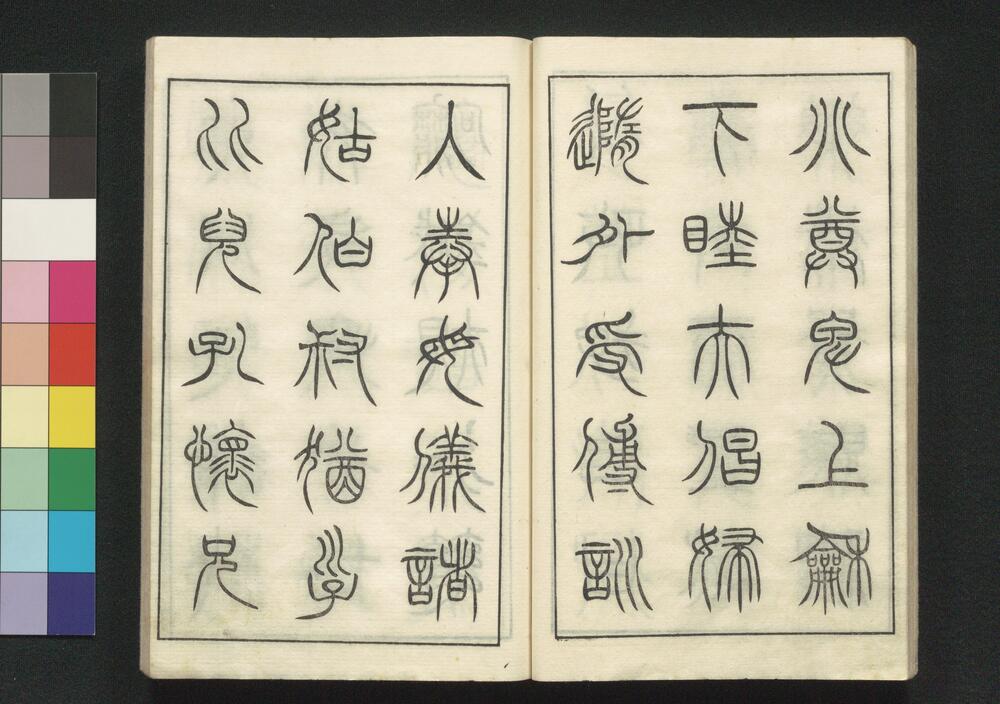 別尊卑上龢
下睦夫倡婦
隨外受傅訓
入奉母儀諸
姑伯叔猶子
比兒孔懷兄